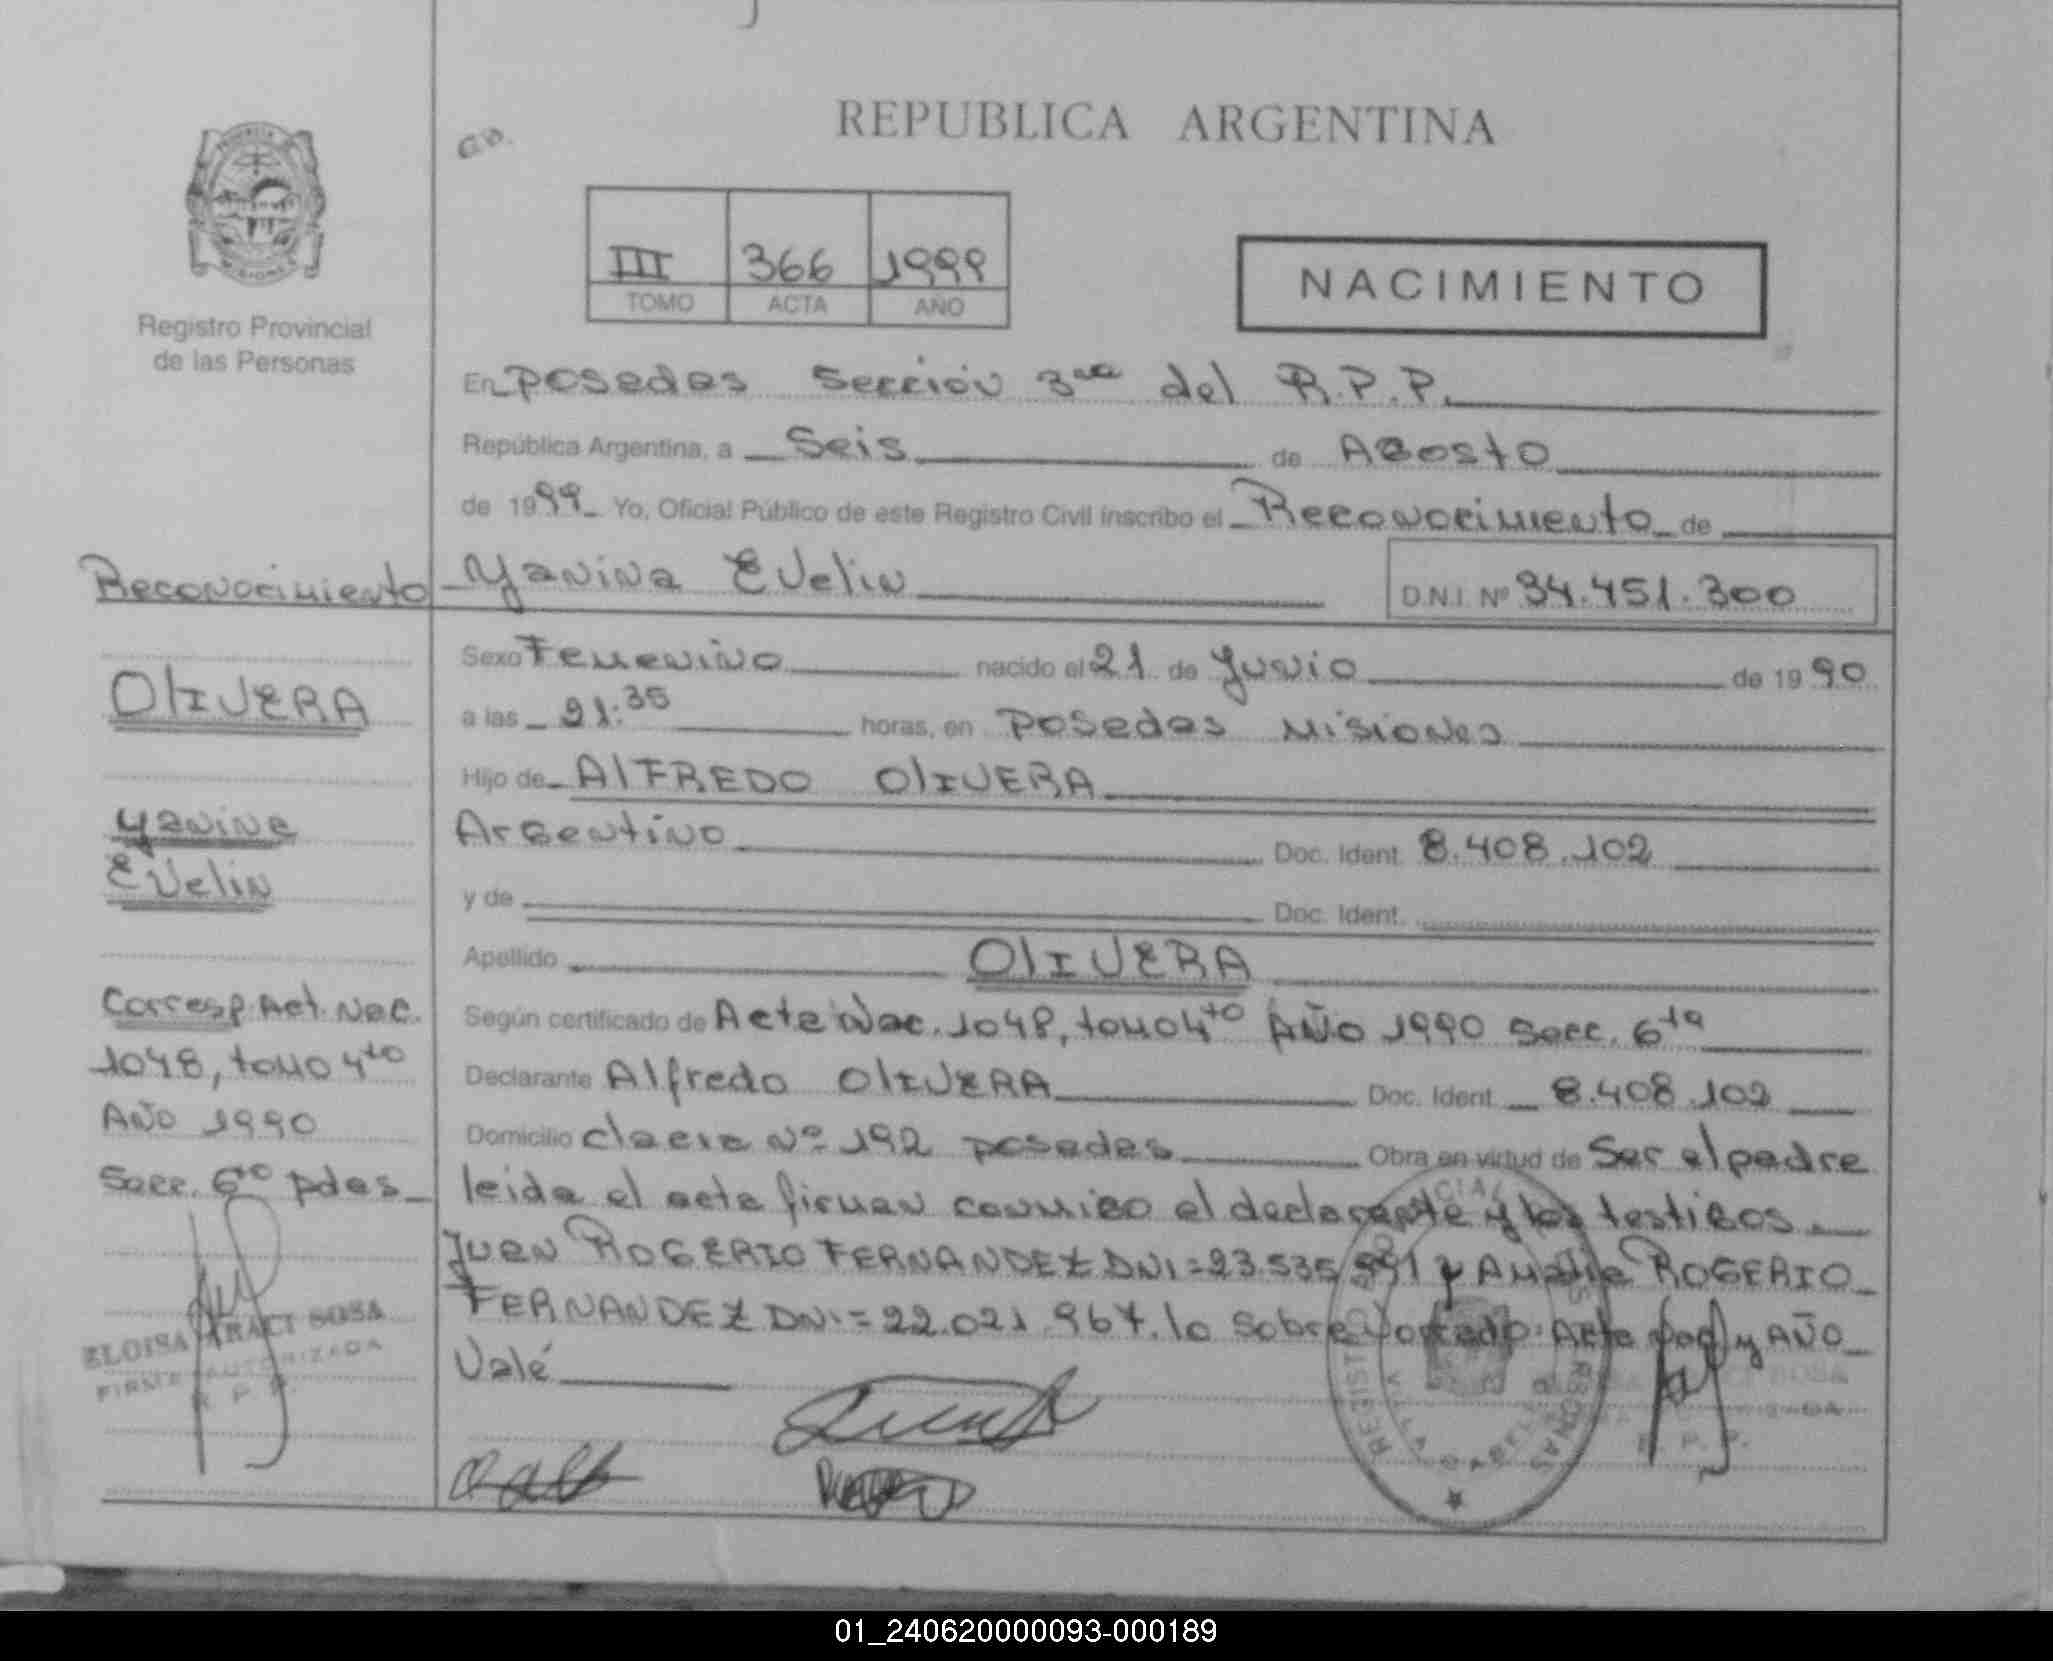 REPUBLICA ARGENTINA
III 366 1999
TOMO ACTA AÑO
NACIMIENTO
Registro Provincial
de las Personas
En Posadas Sección 3ra del R.P.P.
República Argentina, a Seis de Agosto
de 1999 Yo, Oficial Público de este Registro Civil inscribo el Reconocimiento de
Yanina Evelin D.N.I. Nº 34.451.300
Sexo Femenino nacido el 21 de Junio de 1990
a las 21:35 horas, en Posadas Misiones
Hijo de AlFREDO OlIVERA
Argentino Doc. Ident. 8.408.102
y de Doc. Ident.
Apellido OlIVERA
Según certificado de Acta Nac. 1048, tomo 4to AÑO 1990 Secc. 6ta
Declarante Alfredo OlIVERA Doc. Ident. 8.408.102
Domicilio Nº 192 posadas Obra en virtud de Ser el padre
leida el acta firman conmigo el declarante y los testigos
Juan ROGERIO FERNANDEZ DNI=23.535 y Amalia ROGERIO
FERNANDEZ DNI=22.021.967. lo Sobre Acta y AÑO
Valé
Reconocimiento
OlIVERA
Yanina
Evelin
Corresp. Act. Nac.
1048, tomo 4to
AÑO 1990
Secc. 6to pdas
ELOISA ARACI SOSA
FIRMA AUTORIZADA
R. P. P.
SOSA
R. P. P.
01_240620000093-000189